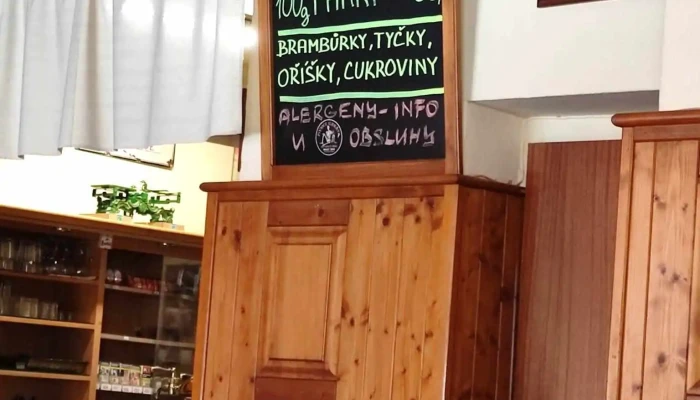 100g PÁRKY
BRAMBŮRKY, TYČKY,
OŘÍŠKY, CUKROVINY
ALERGENY-INFO
U OBSLUHY